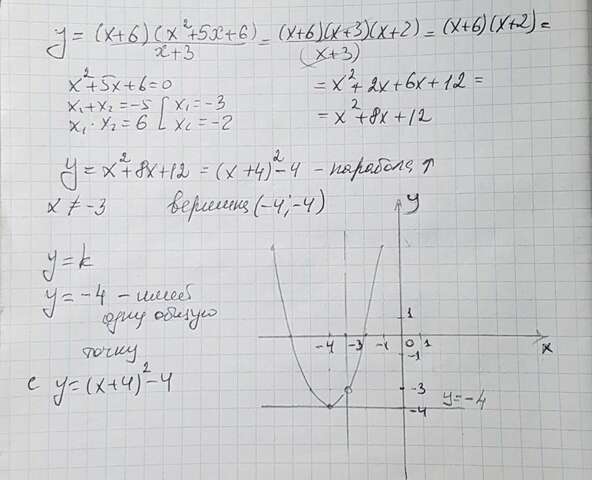 y = (x+6)(x²+5x+6)/(x+3) = (x+6)(x+3)(x+2)/(x+3) = (x+6)(x+2) =
x²+5x+6=0
= x²+2x+6x+12 =
x₁+x₂=-5 [ x₁=-3
x₁·x₂=6 [ x₂=-2
= x²+8x+12
y = x²+8x+12 = (x+4)²-4 - парабола ↑
x ≠ -3 вершина (-4;-4)
y=k
y=-4 - имеет
одну общую
точку
с y=(x+4)²-4
y
1
-4 -3 -1 0 1 x
-1
-3
-4
y=-4